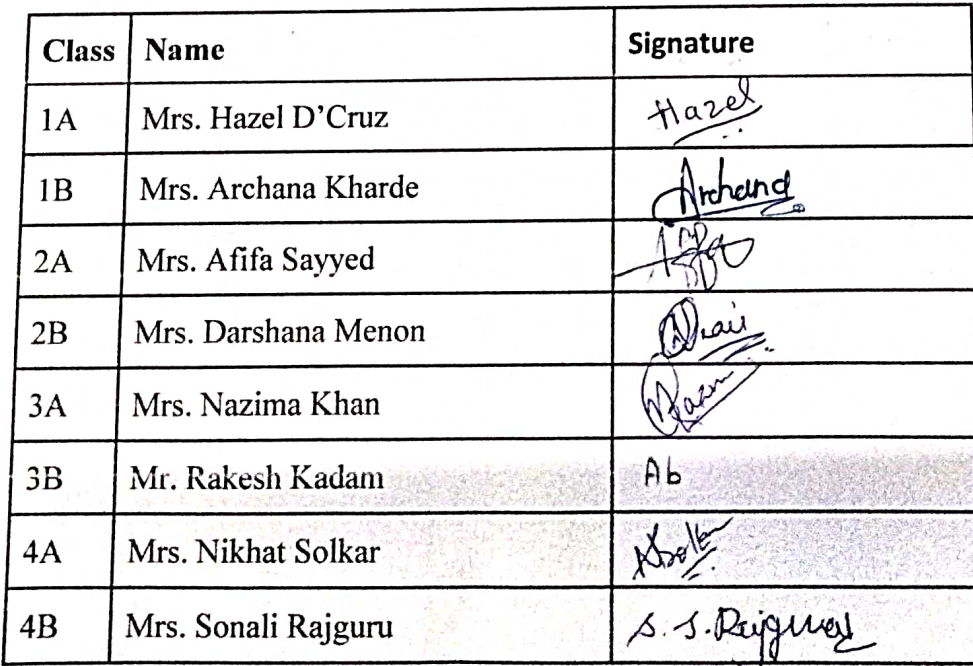 Class Name Signature
1A Mrs. Hazel D'Cruz Hazel
1B Mrs. Archana Kharde Archana
2A Mrs. Afifa Sayyed
2B Mrs. Darshana Menon
3A Mrs. Nazima Khan
3B Mr. Rakesh Kadam Ab
4A Mrs. Nikhat Solkar
4B Mrs. Sonali Rajguru S. S. Rajguru